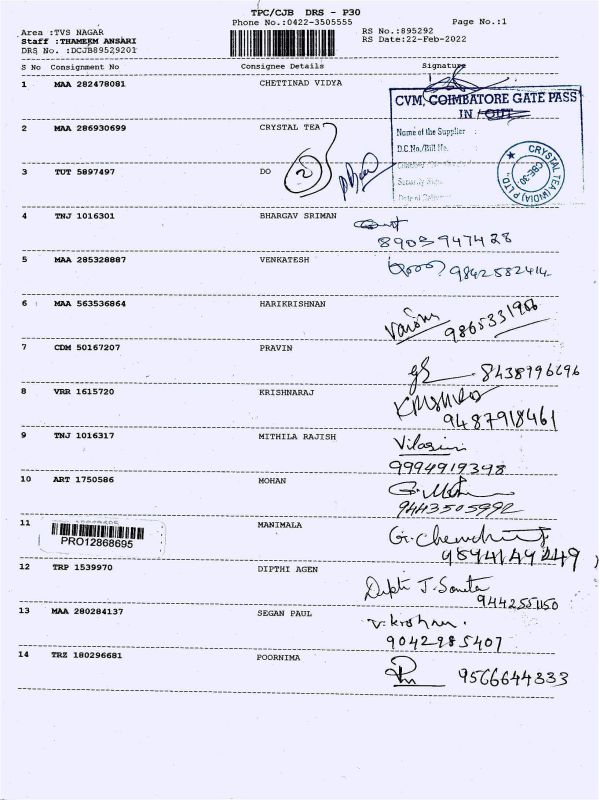 TPC/CJB DRS - P30
Phone No.:0422-3505555
Page No.:1
Area :TVS NAGAR
Staff :THAMEEM ANSARI
DRS No. :DCJB89529201
RS No.:895292
RS Date:22-Feb-2022
S No Consignment No Consignee Details Signature
1 MAA 282478081 CHETTINAD VIDYA
CVM, COIMBATORE GATE PASS
IN / OUT
Name of the Supplier
D.C.No./Bill No.
CRYSTAL TEA (INDIA) P LTD
CBE-30
2 MAA 286930699 CRYSTAL TEA
3 TUT 5897497 DO
2
4 TNJ 1016301 BHARGAV SRIMAN
8903947428
5 MAA 285328887 VENKATESH
9842582414
6 MAA 563536864 HARIKRISHNAN
9865331966
7 CDM 50167207 PRAVIN
8438796696
8 VRR 1615720 KRISHNARAJ
9487918461
9 TNJ 1016317 MITHILA RAJISH
Vilasini
9994919398
10 ART 1750586 MOHAN
G. Mohan
9443505992
11 PRO12868695 MANIMALA
12 TRP 1539970 DIPTHI AGEN
Dipti J. Sameta
9442551150
13 MAA 280284137 SEGAN PAUL
V. Krishnan.
9042985407
14 TRZ 180296681 POORNIMA
9566644333